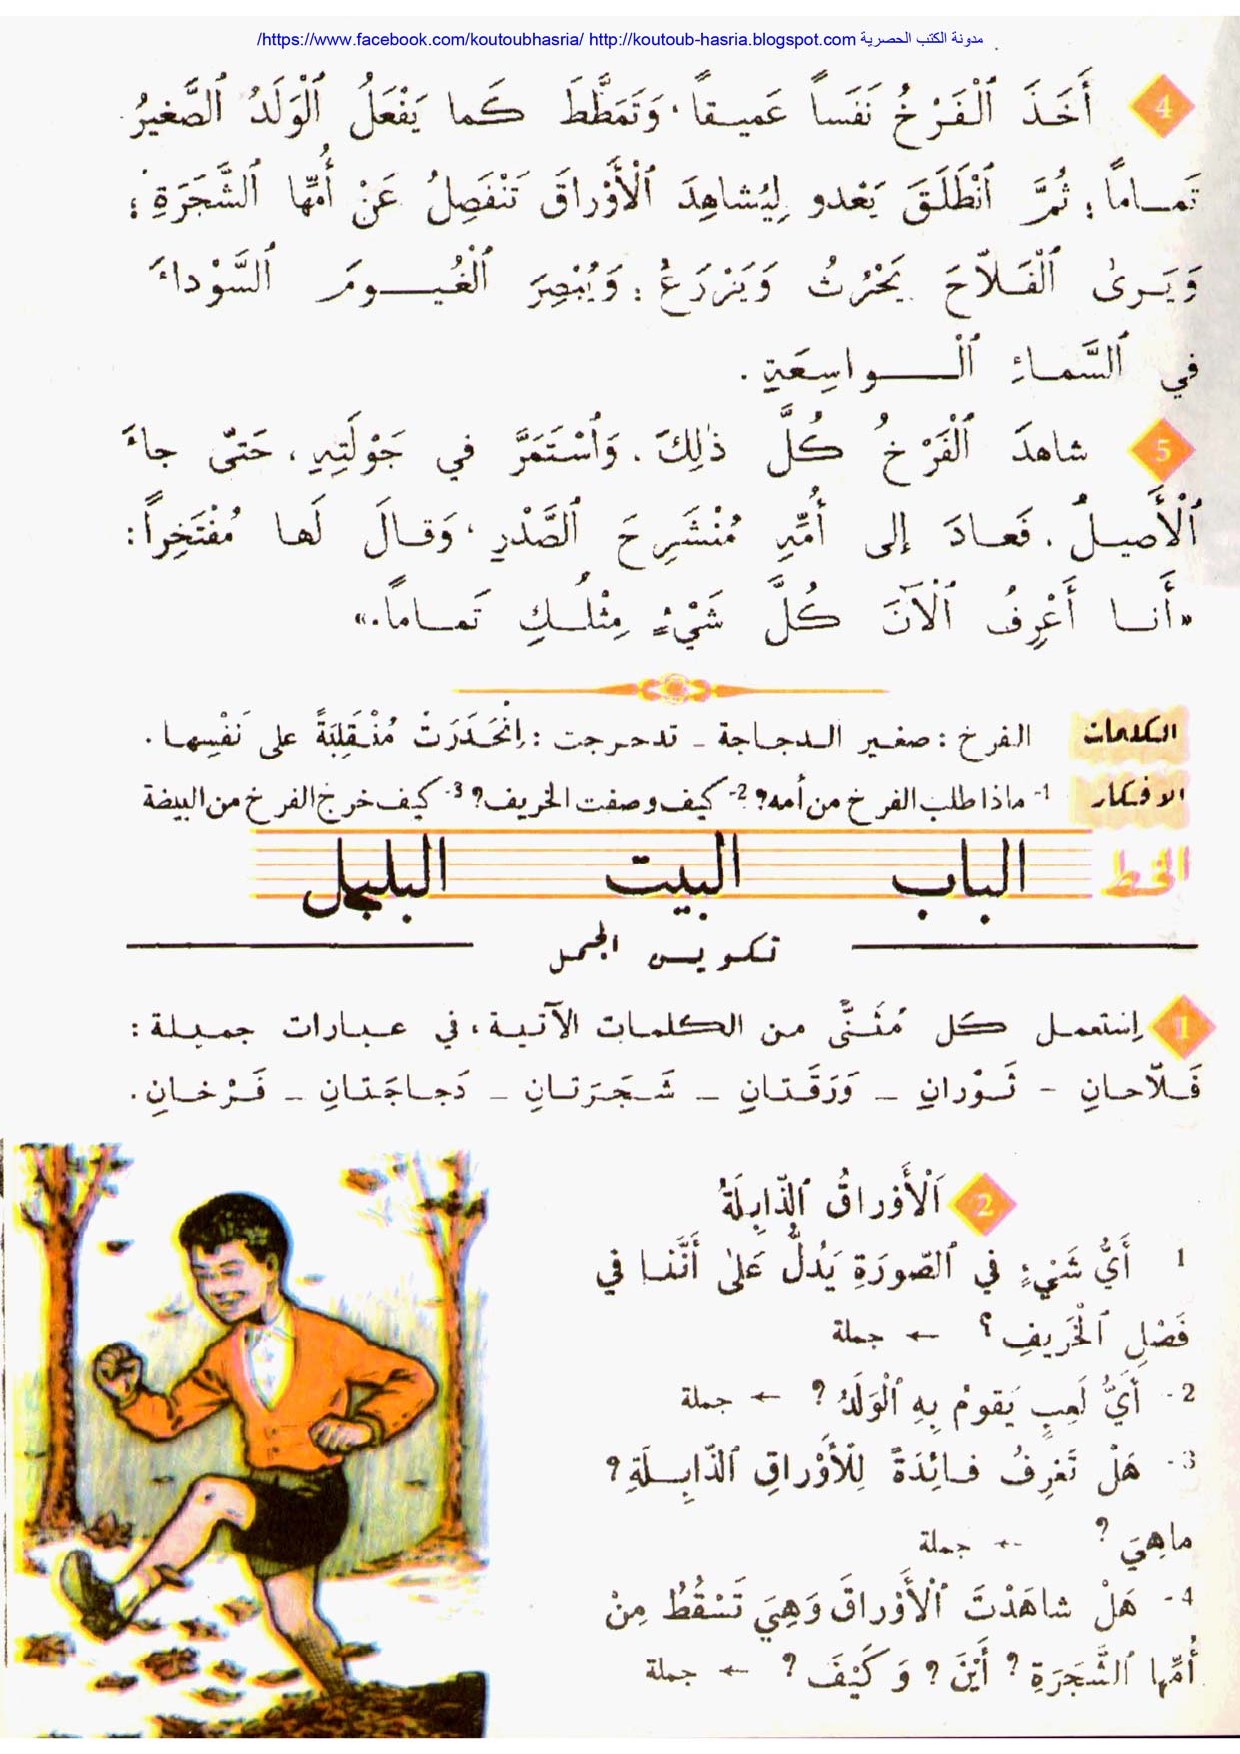 https://www.facebook.com/koutoubhasria/ http://koutoub-hasria.blogspot.com مدونة الكتب الحصرية/
4 أَخَذَ ٱلْفَرْخُ نَفَساً عَميقاً، وَتَمَطَّطَ كَما يَفْعَلُ ٱلْوَلَدُ ٱلصَّغيرُ
تَماماً؛ ثُمَّ ٱنْطَلَقَ يَعْدو لِيُشاهِدَ ٱلْأَوْراقَ تَنْفَصِلُ عَنْ أُمِّها ٱلشَّجَرَةِ؛
وَيَرىٰ ٱلْفَلاّحَ يَحْرُثُ وَيَزْرَعُ؛ وَيُبْصِرَ ٱلْغُيومَ ٱلسَّوْداءَ
في ٱلسَّماءِ ٱلْواسِعَةِ.
5 شاهَدَ ٱلْفَرْخُ كُلَّ ذٰلِكَ. وَٱسْتَمَرَّ في جَوْلَتِهِ، حَتىّ جاءَ
ٱلْأَصيلُ. فَعادَ إلى أُمِّهِ مُنْشَرِحَ ٱلصَّدْرِ، وَقالَ لَها مُفْتَخِراً:
«أَنا أَعْرِفُ ٱلْآنَ كُلَّ شَيْءٍ مِثْلُكِ تَماماً.»
الكلمات الفرخ: صغير الدجاجة - تدحرجت: اِنْحَدَرَتْ مُنْقَلِبَةً على نَفْسِها.
الافكار 1- ماذا طلب الفرخ من أمه؟ 2- كيف وصفت الخريف؟ 3- كيف خرج الفرخ من البيضة
الخط الباب البيت البلبل
تكوين الجمل
1 اِستعمل كَل مُثَنًّى من الكلمات الآتية، في عبارات جميلة:
فَلاّحانِ - ثَوْرانِ - وَرَقَتانِ - شَجَرَتانِ - دَجاجَتانِ - فَرْخانِ.
2 اَلْأَوْراقُ ٱلذّابِلَةُ
1 أَيُّ شَيْءٍ في ٱلصّورَةِ يَدُلُّ عَلىٰ أَنَّنا في
فَصْلِ ٱلْخَريفِ؟ ← جملة
2- أَيُّ لَعِبٍ يَقومُ بِهِ ٱلْوَلَدُ؟ ← جملة
3- هَلْ تَعْرِفُ فائِدَةً لِلْأَوْراقِ ٱلذّابِلَةِ؟
ماهِيَ؟ ← جملة
4- هَلْ شاهَدْتَ ٱلْأَوْراقَ وَهِيَ تَسْقُطُ مِنْ
أُمِّها ٱلشَّجَرَةِ؟ أَيْنَ؟ وَكَيْفَ؟ ← جملة